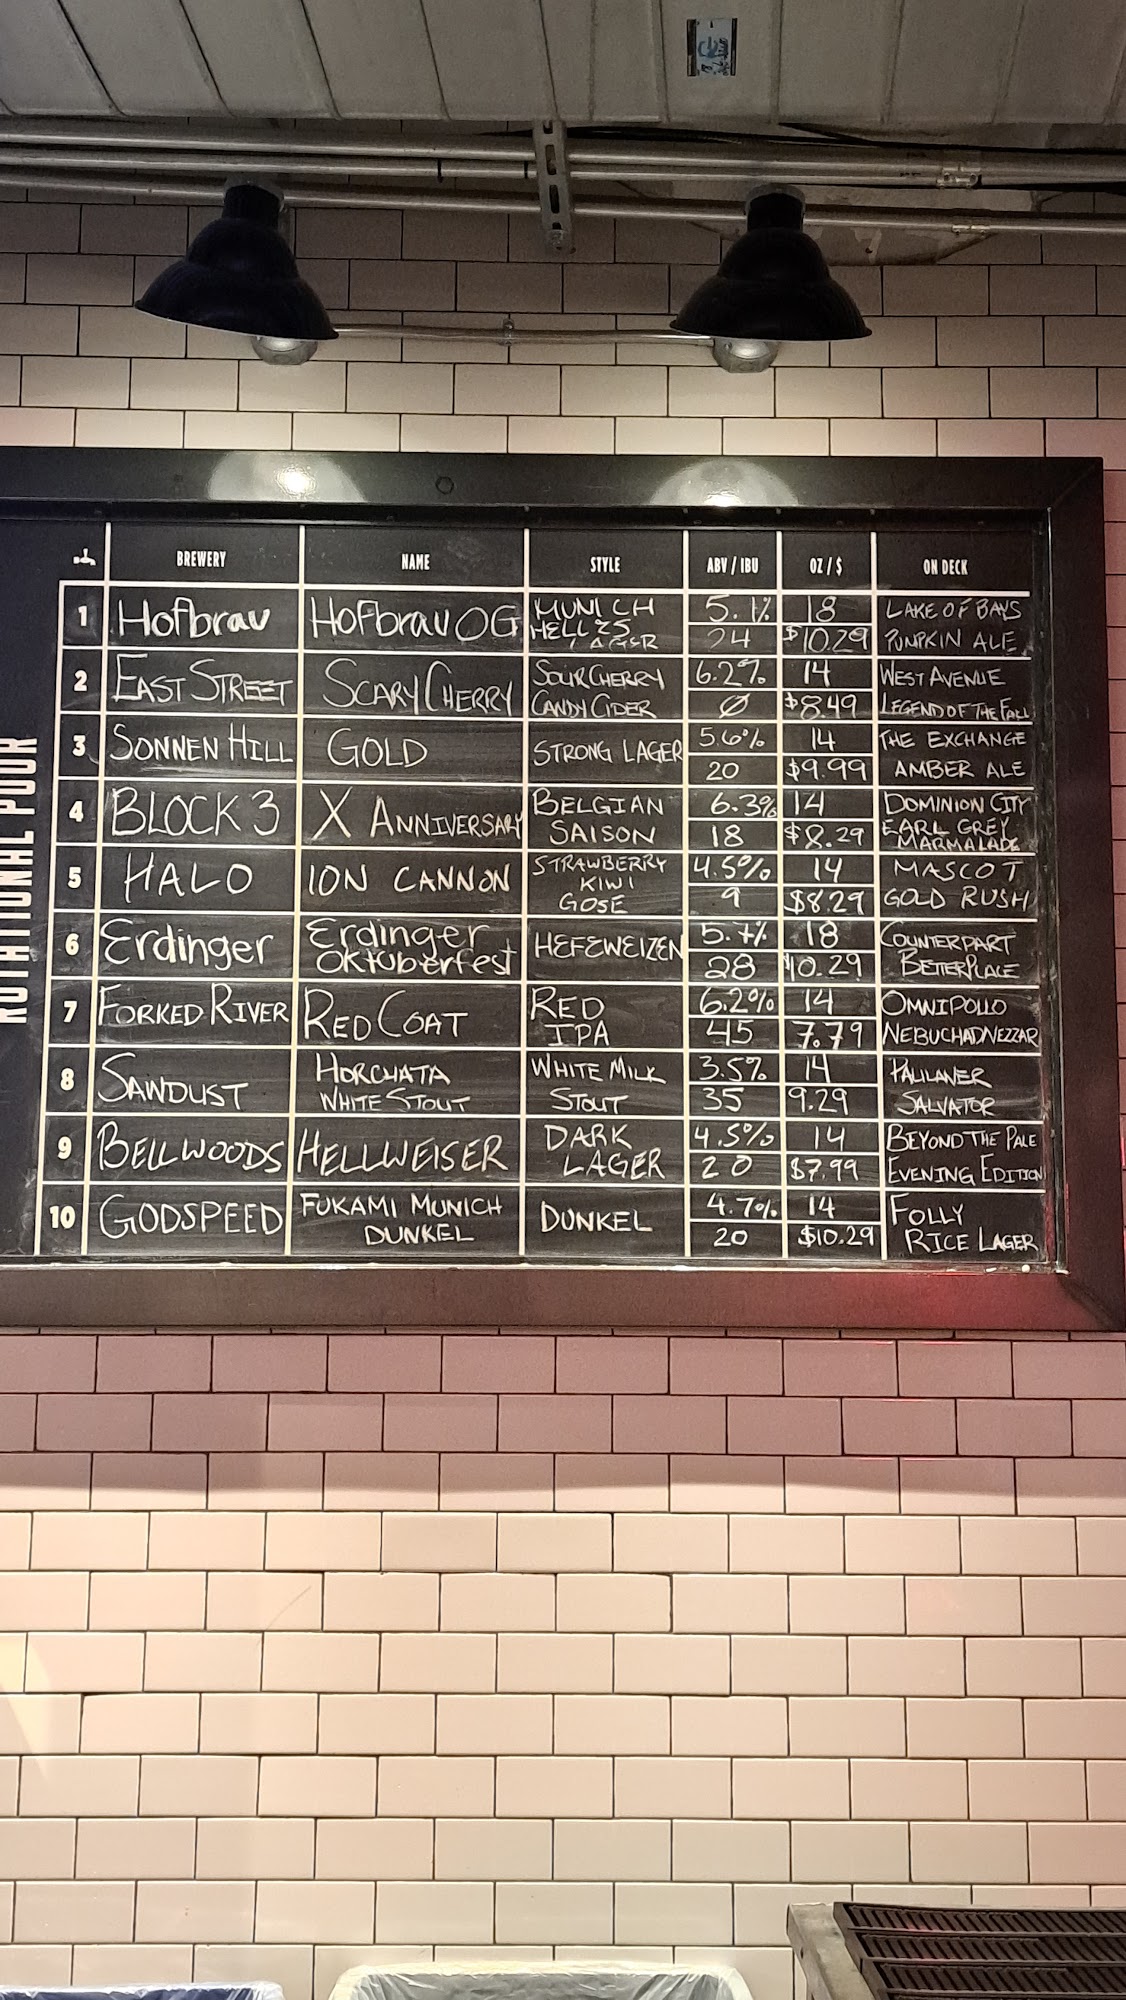 ROTATIONAL POUR
BREWERY NAME STYLE ABV / IBU OZ / $ ON DECK
1 Hofbrau Hofbrau OG MUNICH HELLES LAGER 5.1% 24 18 $10.29 LAKE OF BAYS PUMPKIN ALE
2 EAST STREET SCARY CHERRY SOUR CHERRY CANDY CIDER 6.2% Ø 14 $8.49 WEST AVENUE LEGEND OF THE FALL
3 SONNEN HILL GOLD STRONG LAGER 5.6% 20 14 $9.99 THE EXCHANGE AMBER ALE
4 BLOCK 3 X ANNIVERSARY BELGIAN SAISON 6.3% 18 14 $8.29 DOMINION CITY EARL GREY MARMALADE
5 HALO ION CANNON STRAWBERRY KIWI GOSE 4.5% 9 14 $8.29 MASCOT GOLD RUSH
6 Erdinger Erdinger Oktoberfest HEFEWEIZEN 5.7% 28 18 10.29 COUNTERPART BETTERPLACE
7 FORKED RIVER RED COAT RED IPA 6.2% 45 14 7.79 OMNIPOLLO NEBUCHADNEZZAR
8 SAWDUST HORCHATA WHITE STOUT WHITE MILK STOUT 3.5% 35 14 9.29 PAULANER SALVATOR
9 BELLWOODS HELLWEISER DARK LAGER 4.5% 20 14 $7.99 BEYOND THE PALE EVENING EDITION
10 GODSPEED FUKAMI MUNICH DUNKEL DUNKEL 4.7% 20 14 $10.29 FOLLY RICE LAGER